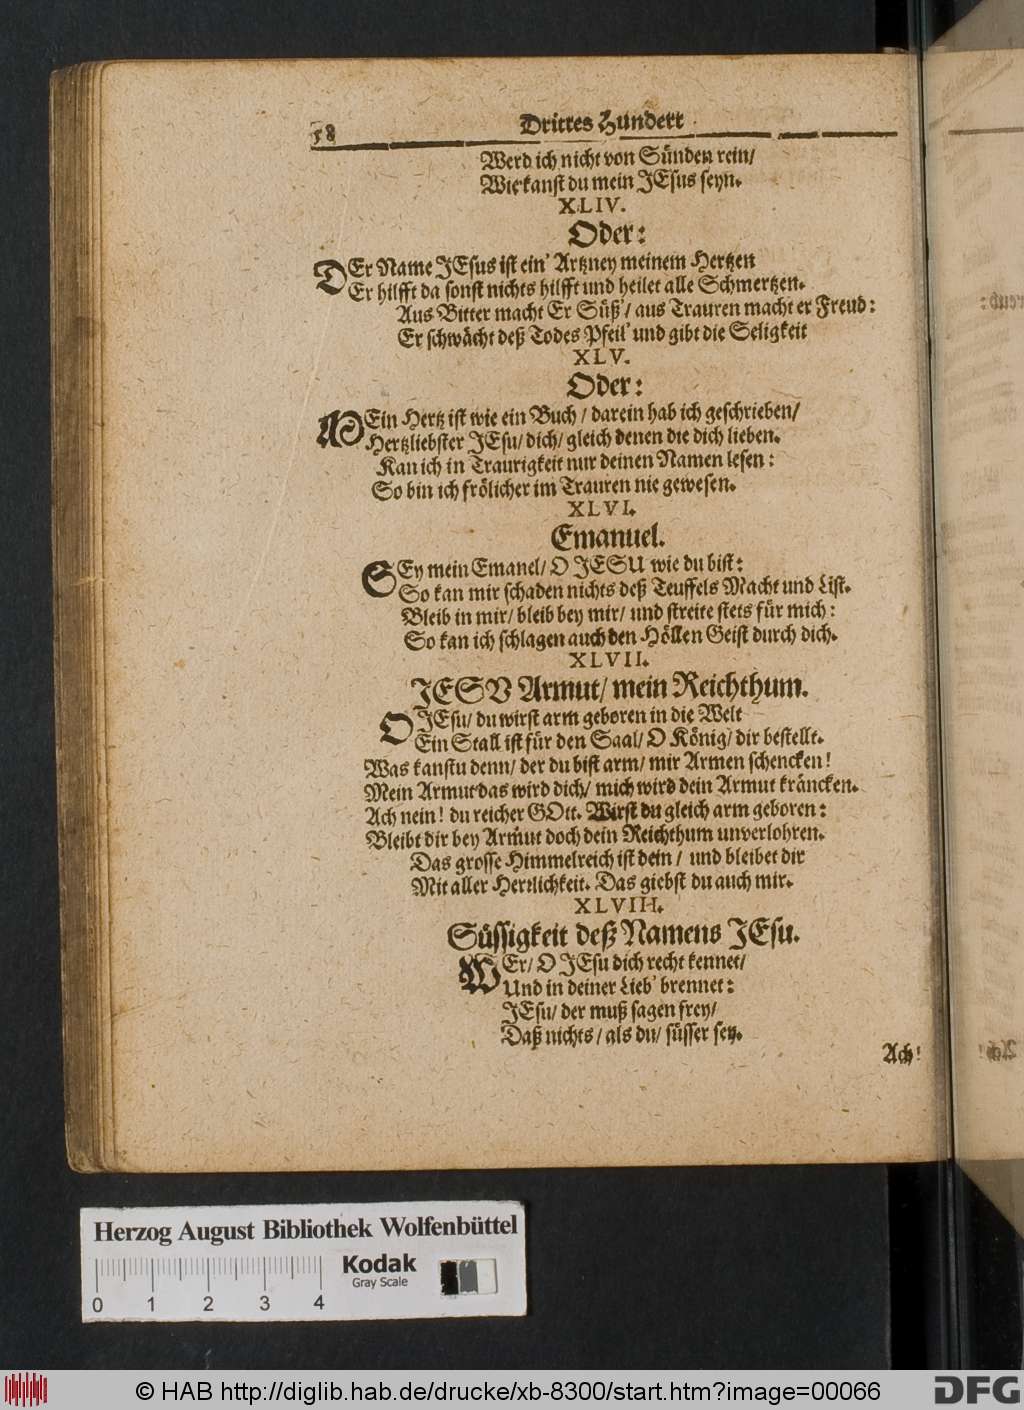 58
Drittes Hundert
Werd ich nicht von Sünden rein/
Wie kanst du mein JEsus seyn.
XLIV.
Oder:
DEr Name JEsus ist ein' Artzney meinem Hertzen
Er hilfft da sonst nichts hilfft und heilet alle Schmertzen.
Aus Bitter macht Er Süß'/ aus Trauren macht er Freud:
Er schwächt deß Todes Pfeil' und gibt die Seligkeit
XLV.
Oder:
MEin Hertz ist wie ein Buch / darein hab ich geschrieben/
Hertzliebster JEsu/ dich/ gleich denen die dich lieben.
Kan ich in Traurigkeit nur deinen Namen lesen:
So bin ich frölicher im Trauren nie gewesen.
XLVI.
Emanuel.
SEy mein Emanel/ O JESU wie du bist:
So kan mir schaden nichts deß Teuffels Macht und List.
Bleib in mir/ bleib bey mir/ und streite stets für mich:
So kan ich schlagen auch den Höllen Geist durch dich.
XLVII.
JESV Armut/ mein Reichthum.
O JEsu/ du wirst arm geboren in die Welt
Ein Stall ist für den Saal/ O König/ dir bestellt.
Was kanstu denn/ der du bist arm/ mir Armen schencken!
Mein Armut das wird dich/ mich wird dein Armut kräncken.
Ach nein! du reicher GOtt. Wirst du gleich arm geboren:
Bleibt dir bey Armut doch dein Reichthum unverlohren.
Das grosse Himmelreich ist dein / und bleibet dir
Mit aller Herrlichkeit. Das giebst du auch mir.
XLVIII.
Süssigkeit deß Namens JEsu.
WEr/ O JEsu dich recht kennet/
Und in deiner Lieb' brennet:
JEsu/ der muß sagen frey/
Daß nichts / als du/ süsser sey.
Ach!
Herzog August Bibliothek Wolfenbüttel
Kodak
Gray Scale
0 1 2 3 4
© HAB http://diglib.hab.de/drucke/xb-8300/start.htm?image=00066
DFG